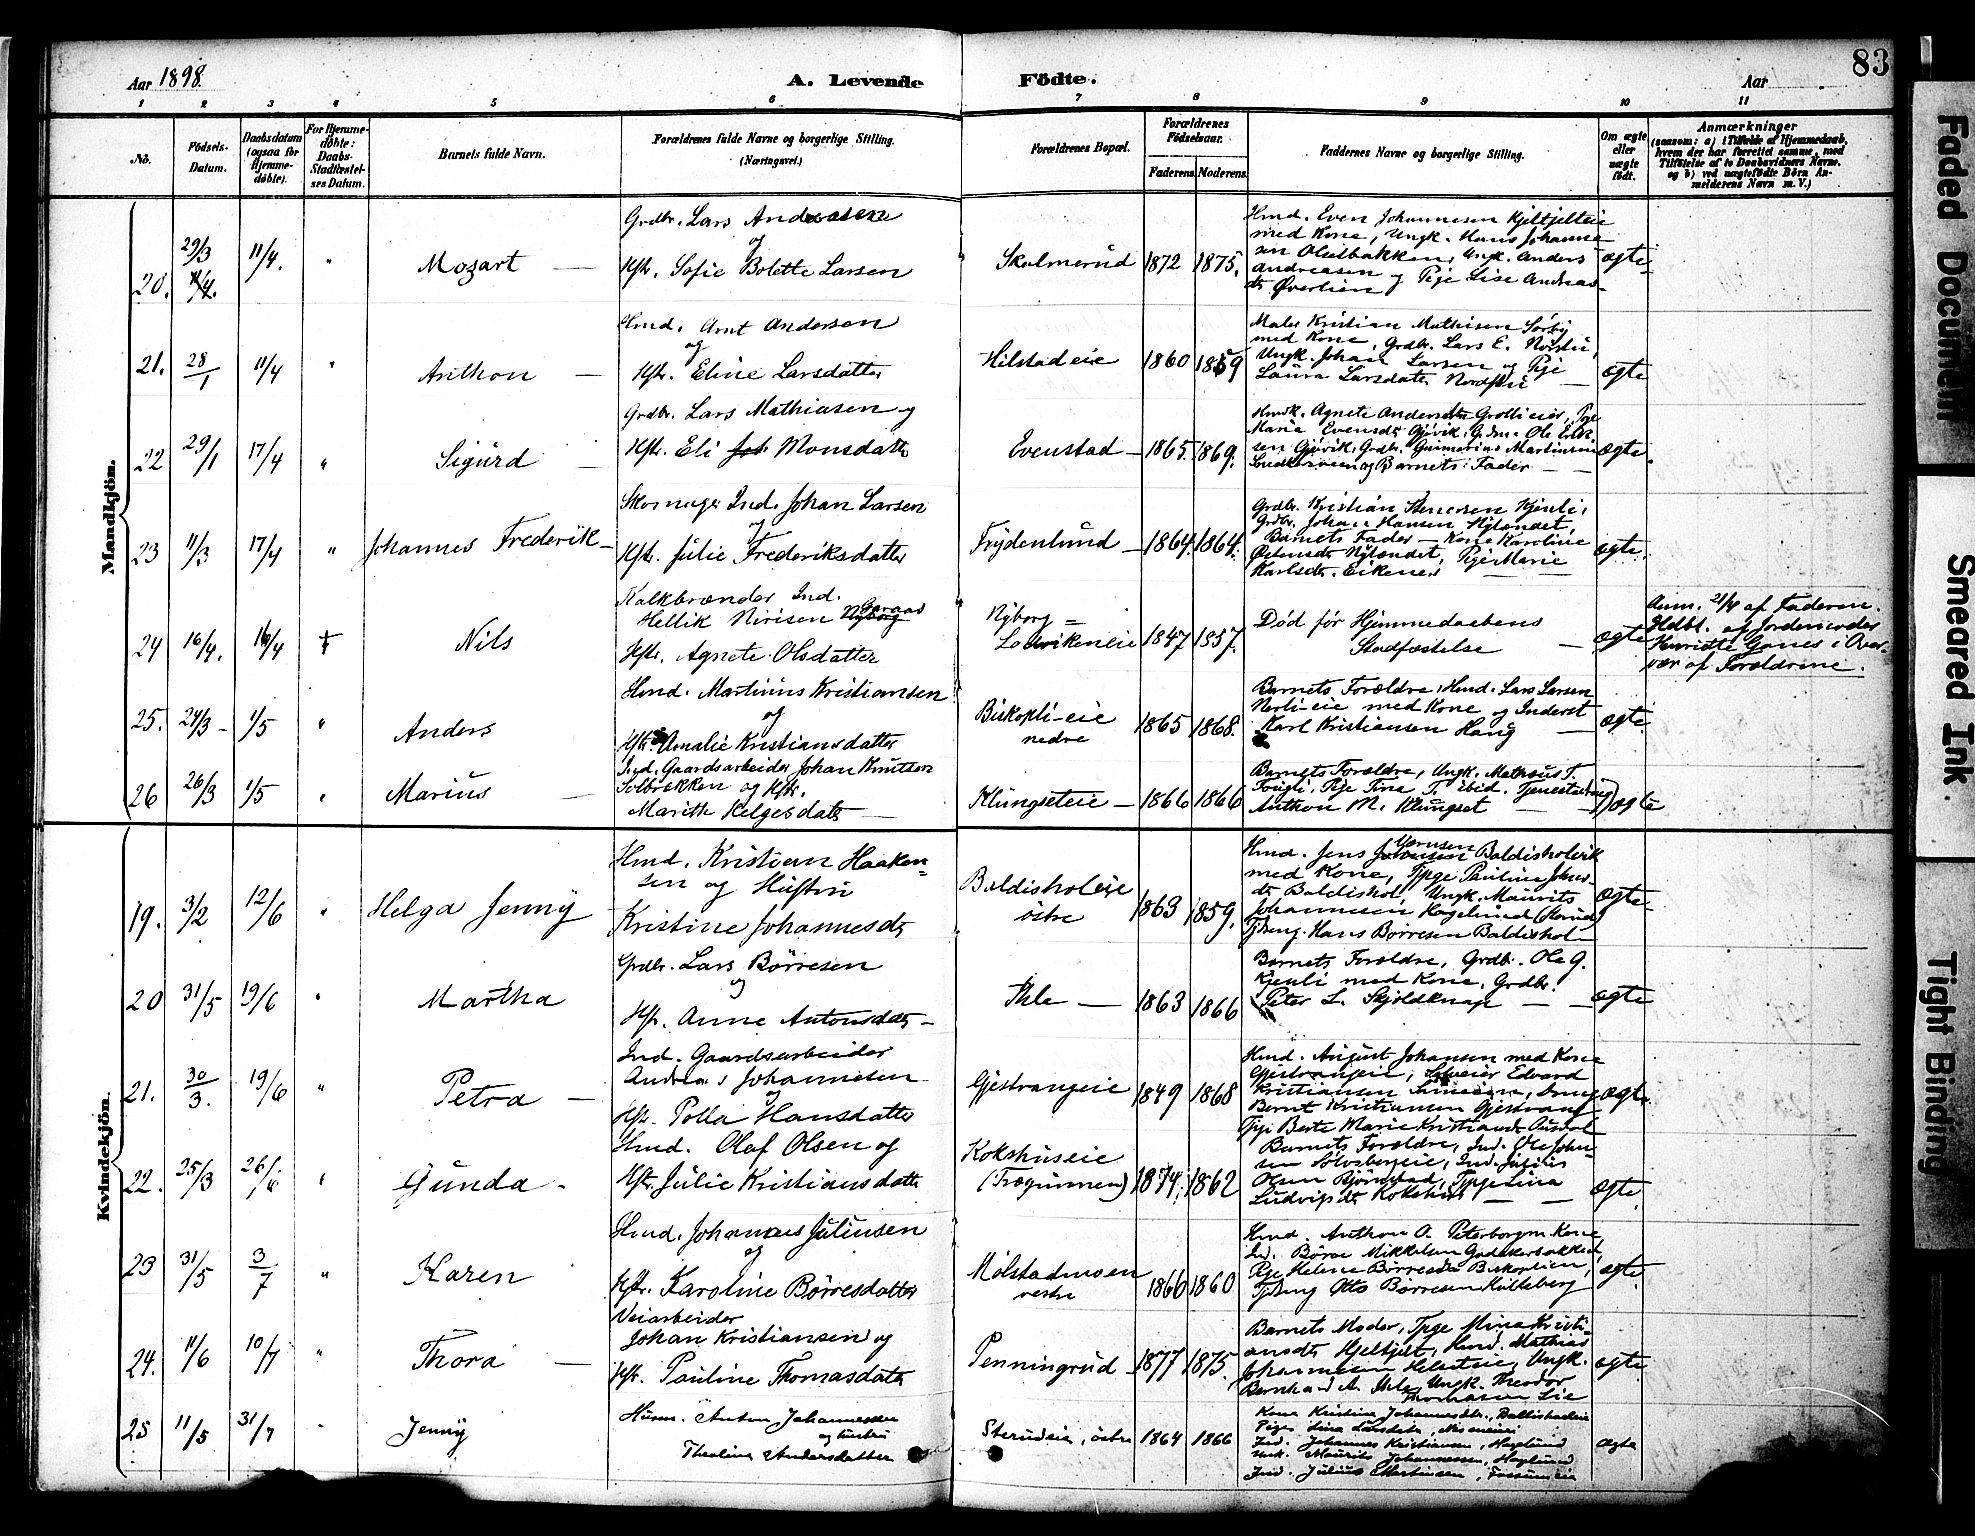 83
Aar 1898.
A. Levende Födte.
Aar
1 2 3 4 5 6 7 8 9 10 11
No.
Födsels-Datum.
Daabsdatum (ogsaa for Hjemme-döbte).
For Hjemme-döbte: Daabs-Stadfæstel-ses Datum.
Barnets fulde Navn.
Forældrenes fulde Navne og borgerlige Stilling.
(Næringsvei.)
Forældrenes Bopæl.
Forældrenes Födselsaar.
Faderens. Moderens.
Faddernes Navne og borgerlige Stilling.
Om ægte eller uægte födt.
Anmærkninger
(saasom: a) i Tilfælde af Hjemmedaab, hvem der har forrettet samme, med Tilföielse af to Daabsvidners Navne, og b) ved uægtefödte Börn An-melderens Navn m. V.)
Mandkjön.
20. 29/3 11/4. " Mozart —
Grdbr. Lars Andreasen
og
Hstr. Sofie Bolette Larsen
Skolmerud 1872 1875.
Hmd. Even Johannesen Kjeltjelteie
med Kone, Ungk. Hans Johanne
sen Olielbakken, Ungk. Anders
Andreasen
Øverlien og Pige Lise Andreas-
ægte
21. 28/1 11/4 " Anthon —
Hmd. Arnt Andersen
og
Hstr. Eline Larsdatter
Hilstadeie 1860 1859
Maler Kristian Mathisen Sørby
med Kone, Grdbr. Lars E.
Ungk. Johan Larsen og Pige
Laura Larsdatter —
ægte
22 29/1 17/4 " Sigurd —
Grdbr. Lars Mathiasen og
Hstr. Eli Monsdatter
Evenstad — 1865. 1869.
Agnete Andersdtr Pige
Maria Evensdtr Gjøvik, Ole Erik-
sen Gjøvik, Grdbr. Gunnerius Martinsen
og Barnets Fader —
ægte.
23 11/3 17/4 " Johannes Frederik —
Skomager Ind. Johan Larsen
og
Hstr. Julie Frederiksdatter
Frydenlund — 1864 1864.
Grdbr. Kristian Stenersen Kjenli,
Grdbr. Johan Hansen Nylendet,
Barnets Fader — Kone Karoline
Nylendet, Pige Marie
Karlsdtr. —
ægte.
24 16/4. 16/4 Nils
Kalkbrænder Ind.
Hellik Nirisen Garaas
Hstr. Agnete Olsdatter
Nyborg =
1847 1857.
Død før Hjemmedaabens
Stadfæstelse —
ægte
Anm. 21/4 af Faderen.
Hdbt. af Jordemoder
i Over-
vær af Forældrene.
25. 24/3 – 1/5 " Anders
Hmd. Martinius Kristiansen
og
Hstr. Amalie Kristiansdatter
Biskopli-eie
nedre
1865 1868.
Barnets Forældre, Hmd. Lars Larsen
med Kone og Inderst
Karl Kristiansen Haug —
ægte
26 26/3 1/5 " Marius —
Ind. Gaardsarbeider Johan Knutsen
Solbrækken og Hstr.
Marithe Helgesdatter —
Klungseteie — 1866 1866
Barnets Forældre, Ungk. Matheus T.
Pige Tina T. ibid. Tjenestedreng
Anthon M. Klungset —
ægte
Kvindekjön.
19. 3/2 12/6 " Helga Jenny
Hmd. Kristian Haaken-
sen og Hustru
Kristine Johannesdtr
Baldisholeie
østre
1863 1859.
Hmd. Jens Baldisholeie
med Kone, Tpge Pauline
Baldishol, Ungk. Maurits
Johannesen Haglund
Hans Børresen Baldishol –
ægte –
20 31/5 19/6 " Martha
Grdbr. Lars Børresen
og
Hstr. Anne Antonsdtr –
Ihle — 1863 1866
Barnets Forældre, Grdbr. Ole G.
Kjenli med Kone, Grdbr.
Peter L. Skjoldknap — —
ægte
21. 30/3. 19/6 " Petra —
Ind. Gaardsarbeider
Andreas Johannesen
og
Hstr. Polla Hansdatter
Gjestvangeie 1849 1868
Hmd. August Johansen med Kone
Gjestvangeie, Edvard
Kristiansen
Bernt Kristiansen Gjestvang
Tpge Berte Marie Kristiansdtr
ægte.
22. 25/3 26/6 " Gunda –
Hmd. Olaf Olsen og
Hstr. Julie Kristiansdatter
Kokshuseie
1874. 1862
Barnets Forældre, Ind. Ole Johan-
sen Solvsbergeie, Ind. Julius
Olsen Bjørnstad, Tpge Lina
Ludvigsdtr Kokshus — —
ægte.
23 31/5 3/7 " Karen
Hmd. Johannes Juliusen
og
Hstr. Karoline Børresdatter
Mølstadmoen
vestre
1866 1860
Hmd. Anthon O. Peterborg m Kone,
Ind. Børre Mikkelsen
Pige Helene Børresdtr
Otto Børresen Hilleberg
ægte
24. 11/6 10/7 " Thora —
Veiarbeider
Johan Kristiansen og
Hstr. Pauline Thomasdatter
Penningrud — 1877 1875.
Barnets Moder, Tpge Mina Kristi-
ansdtr Hmd. Mathias
Johannesen Ungk.
Bernhard A. Ihle, Ungk. Theodor
Thomasen Lie
ægte
25 11/5 31/7 Jenny
Husm. Anton Johannessen
og hustru
Theoline Andersdatter
Sterudeie, østre 1864 1866
Kone Kristine Johannesdtr., Baldisholeie
Pige Lina Larsdatter,
Ind. Johannes Kristiansen, Haglund
Ungk. Maurits Johannessen, Haglund
Ind. Julius Martinsen,
ægte
Faded Document
Smeared Ink.
Tight Binding